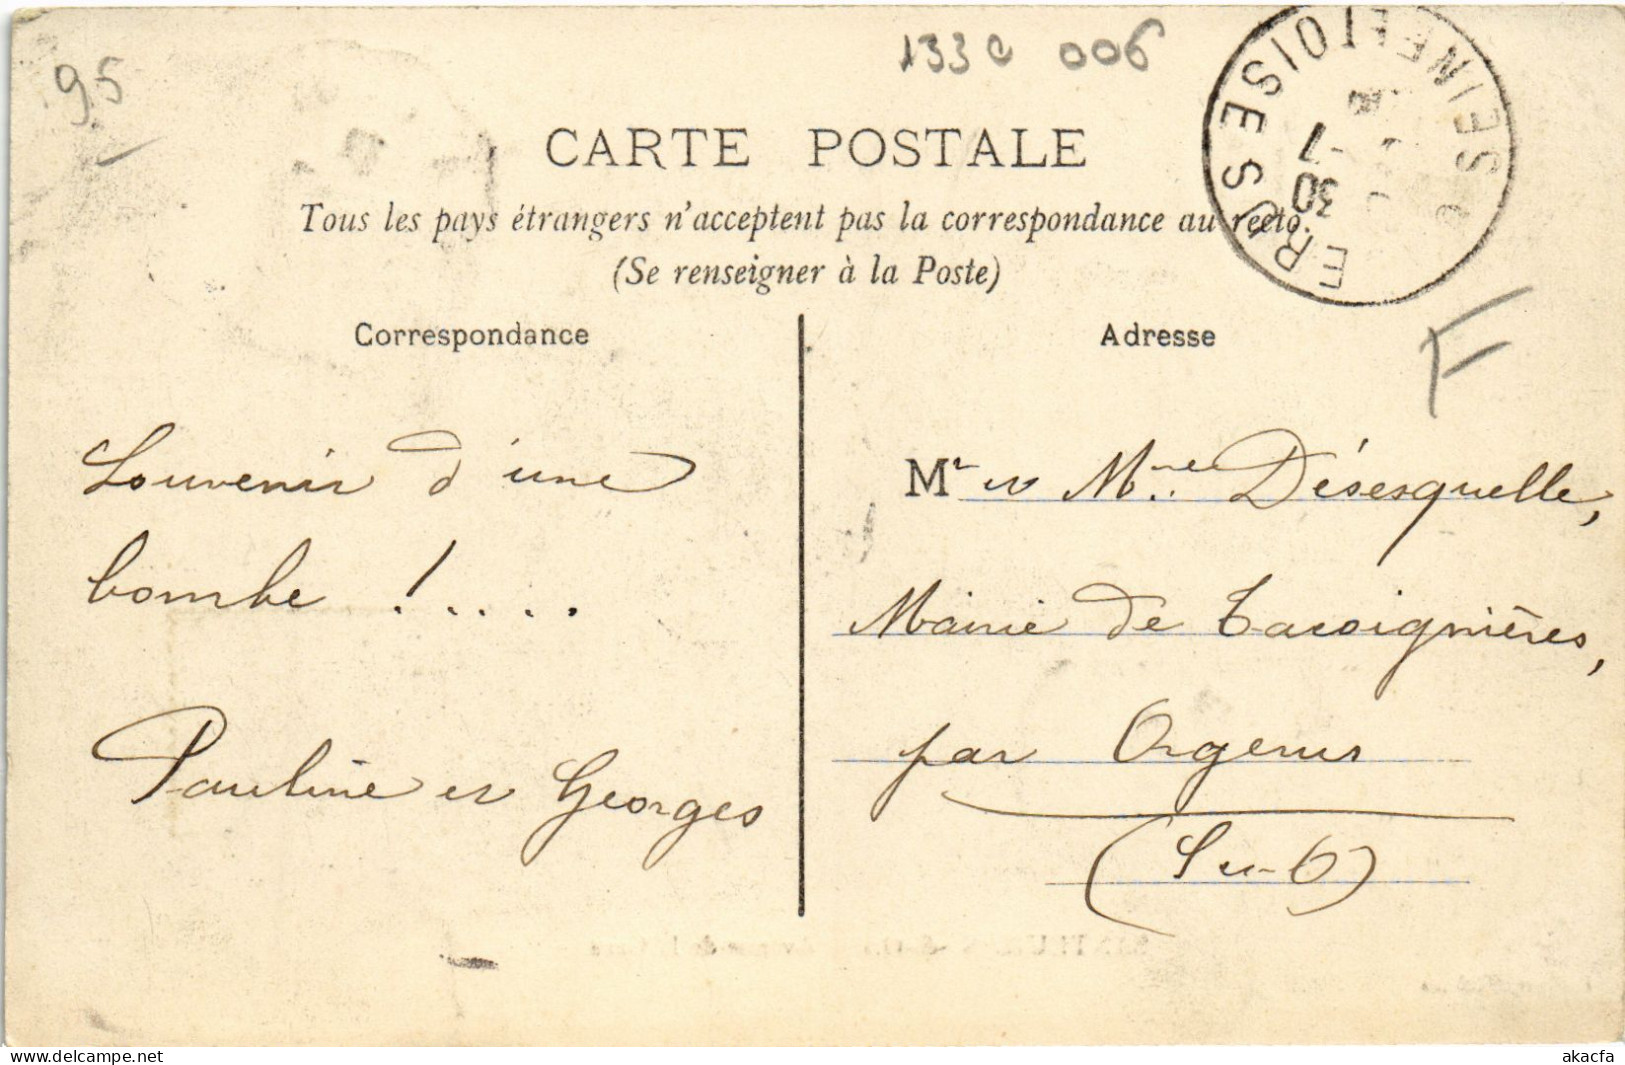 95
133e 006
SEINE ET OISE
7 30
CARTE POSTALE
Tous les pays étrangers n'acceptent pas la correspondance au recto.
(Se renseigner à la Poste)
Correspondance
Souvenir d'une
bombe !....
Pauline et Georges
Adresse
F
Mr et Mme Désesquelle,
Mairie de Tacoignières,
par Orgerus
(S-et-O)
akacfa-delcampe.net
akacfa